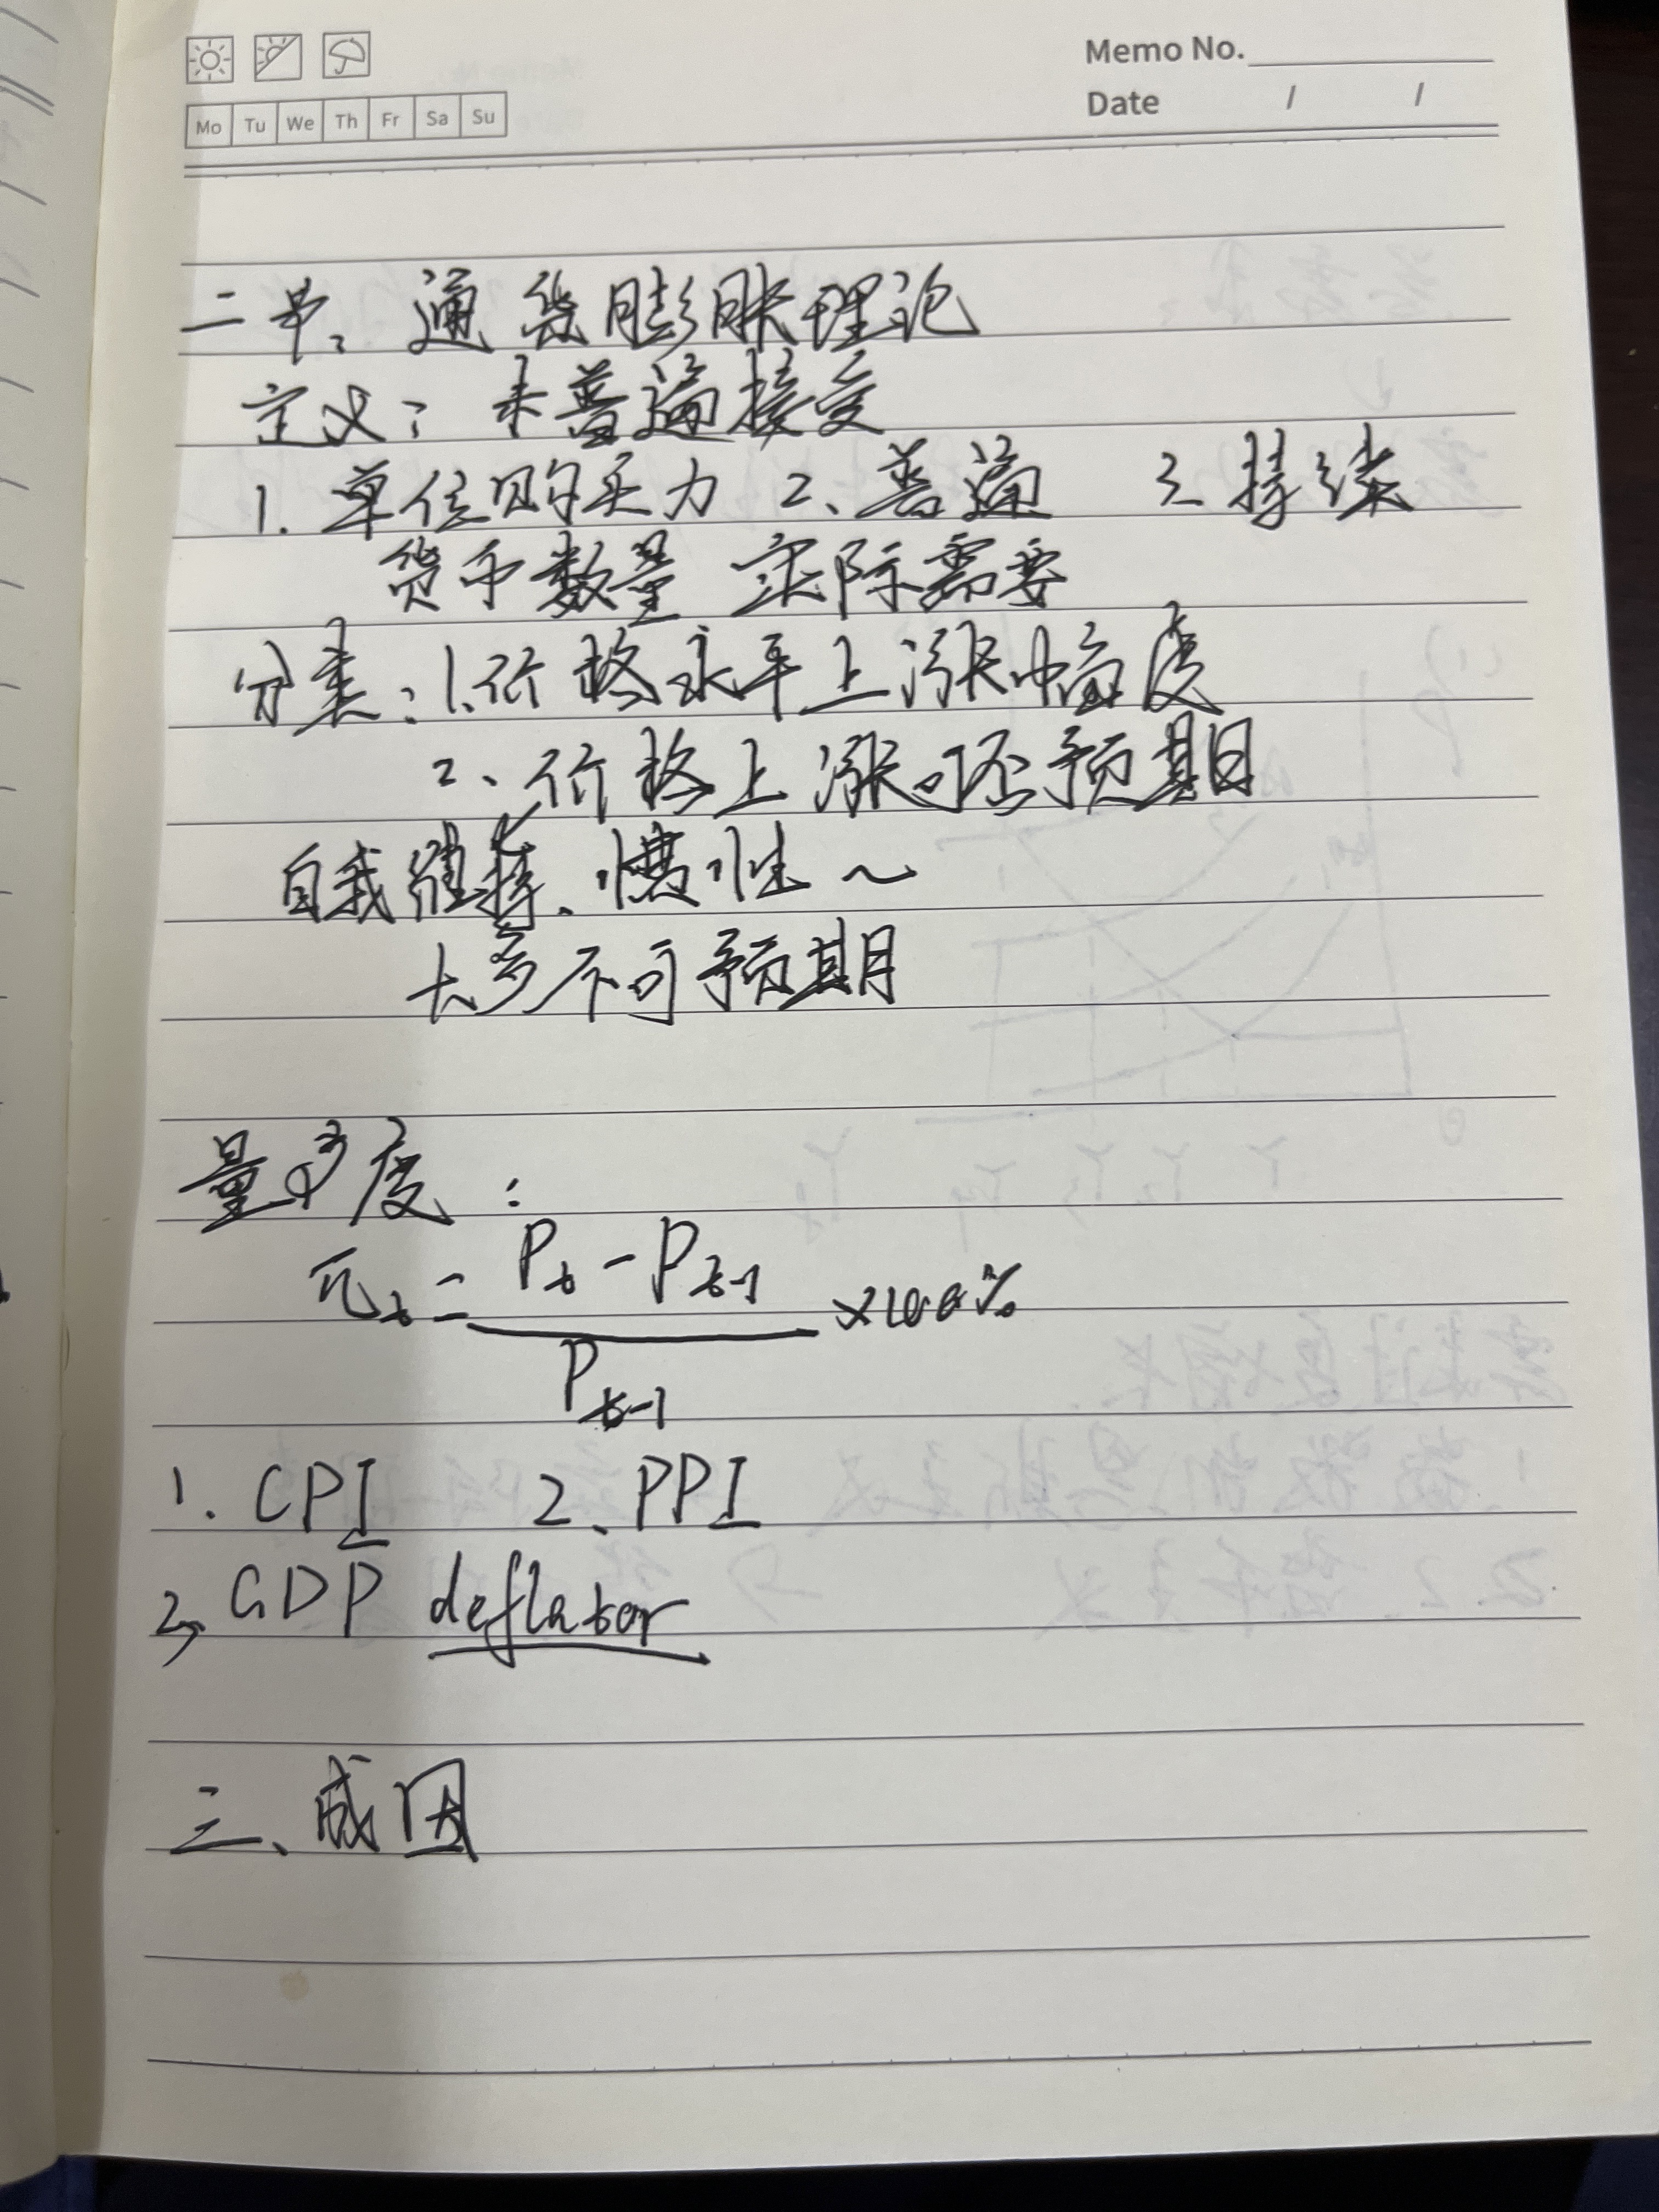 Memo No.
Mo Tu We Th Fr Sa Su
Date / /
二节、通货膨胀理论
定义：未普遍接受
1. 单位购买力 2、普遍 3. 持续
货币数量 实际需要
分类：1.价格水平上涨幅度
2、价格上涨可否预期
自我维持、惯性～
大多不可预期
量度：
π_t = (P_t - P_{t-1}) / P_{t-1} ×100%
1. CPI 2、PPI
3, GDP deflator
三、成因